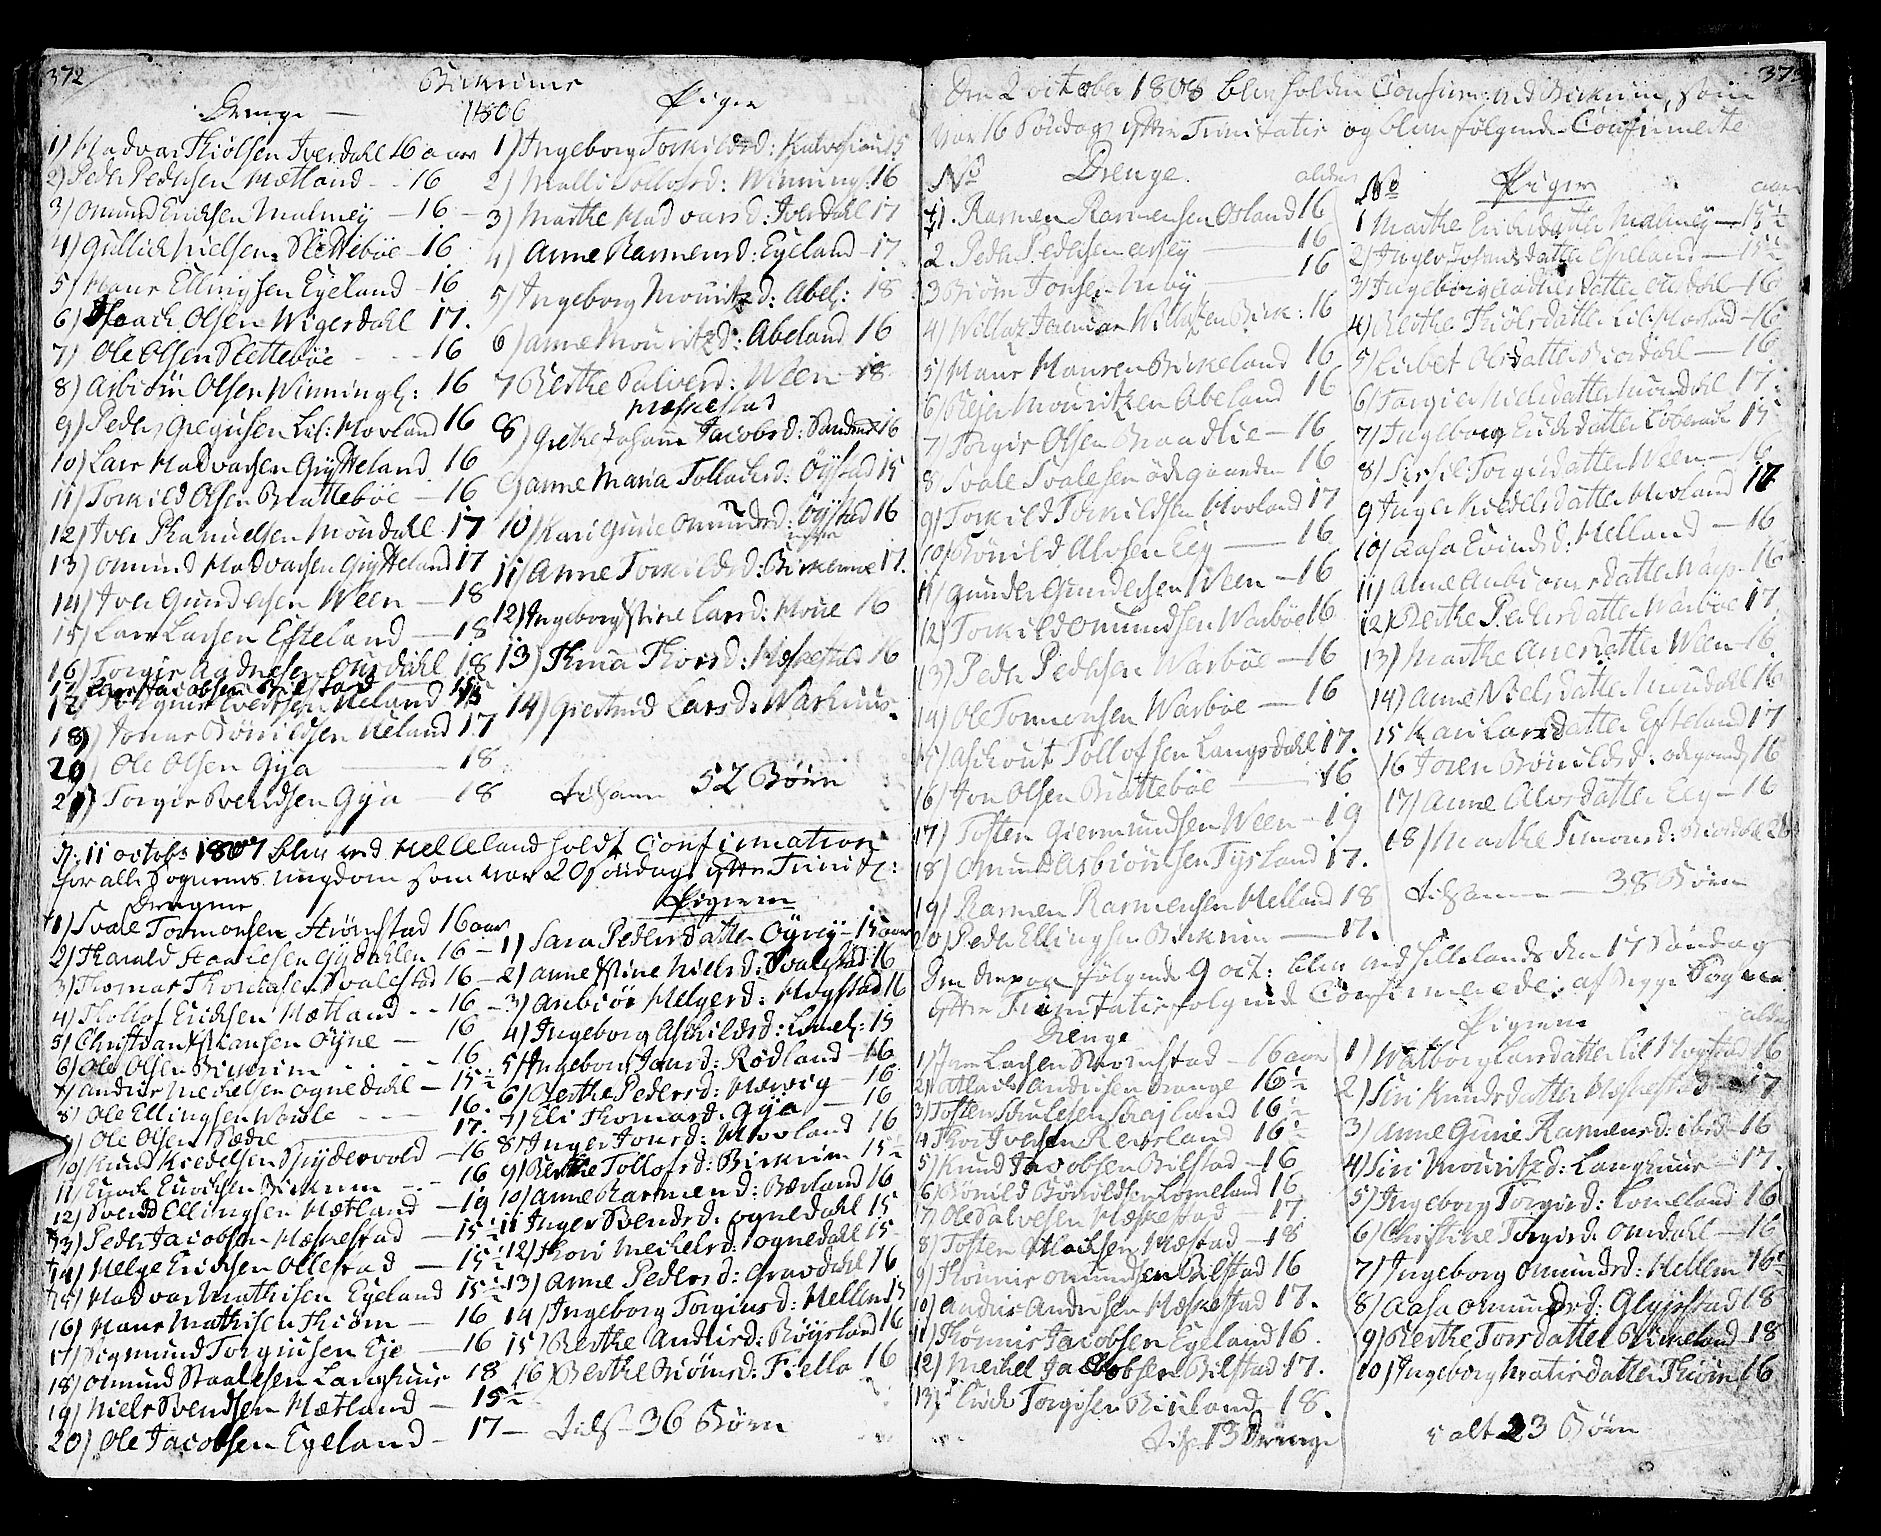 372
Birkrims
1806
Drenge —
1) Hadvar Thiölsen Iversdahl 16 aar
2) Peder Pedersen Mætland - - 16
3) Omund Ericksen Malmey — 16 -
4) Gullich Nielsen Slettebøe - 16
5) Hans Ellingsen Egeland - 16
6) Olsen Wigersdahl 17.
7) Ole Olsen Slettebøe - - - 16
8) Asbiörn Olsen Winningl: 16
9) Peder Gregersen Lil: Hovland 16
10) Lars Hadvarsen Grytteland 16
11) Torkild Olsen Brattebøe — 16
12) Iver Samuelsen Mondahl 17
13) Omund Hadvarsen Grytteland 17
14) Iver Gundersen Ween — 18
15) Lars Larsen Efteland — 18
16) Torgier Aadnesen Oursdahl 18
17 Lars Jacobsen Bilstad
Ueland
18) Jonas Bönildsen Ueland 17
20) Ole Olsen Gya — 18
21) Torgier Svendsen Gya — 18
Piger
1) Ingeborg Torkildsd: 15
2) Malli Tollofsd: Winning: 16
3) Marthe Hadvarsd: Iversdahl 17
4) Anne Rasmusd: Egeland - 17
5) Ingeborg Mouritzd: Abel: 18
6) Anne Mouritzd: Abeland 16
7 Berthe Salvesd: Ween - 18
Hæskestad
8) Grethe Johanne Jacobsd: 16
9 Anne Maria Tolleivsd: Öystad 15
10) Kari Gurie Omundsd: Öystad 16
11) Anne Torkildsd: Birkemoe 17.
12) Ingeborg Stine Larsd: Moue 16
13) Thorsd: Hæskestad 16
14) Giertrud Larsd:
Tilsamen 52 Börn
D: 11 octobr 1807 blev ved Helleland holdt Confirmation
for alle Sognenes ungdom som var 20 söndag efter Trinit:
Drengene
1) Svale Tormondsen Strömstad 16 aar
2) Tharald Staalesen Gydahlen 16 —
3) Thomas Thomasen Svalestad 16 —
4) Thollof Ericksen Mætland - - 16
5) Christian Hansen Öyne — 16
6) Ole Olsen Birkrim - - - 16
7) Andreas Meckelsen Ognedahl — 15½
8) Ole Ellingsen 16.
9) Ole Olsen Sædre 17.
10) Knud Kiedelsen Spydervold — 16
11) Erich Erichsen Birkrim - - - 16
12) Svend Ellingsen Mætland — 19
13) Peder Jacobsen Hæskestad — 15½
14) Helge Ericksen Ollestad — 15½
15) Hadvar Mathisen Egeland 15½
16) Hans Mathisen Thiörn — 16
17) Sigmund Torgiersen Eje — 16
18) Omund Staalesen Langhuus 18
19) Niels Svendsen Mætland — 15½
20) Ole Jacobsen Egeland — 17
Pigerne
1) Sara Pedersdatter Öyrey — 15 aar
2) Anne Stine Nielsd: Svalestad 16
3) Anbiör Helgesd: Mogstad 16
4) Ingeborg Askildsd: Lomel: 15
5) Ingeborg Jonsd: Rødland — 16
6) Berthe Pedersd: — 16
7) Eli Thomasd: Gya — 16
8) Inger Jonsd: Movland 16
9) Berthe Tollofsd: Birkrim 15½
10) Anne Rasmusd: Bærland 16
11 Inger Svendsd: Ognedahl 15
12) Thori Meckelsd: Ognedahl 15
13) Anne Pedersd: Gravdahl 16
14) Ingeborg Torgiersd: Hellen 15
15) Berthe Andersd: Röysland 16
16) Berthe Biörnsd: Fiello 16
Tils — 36 Börn
373
Den 2 october 1808 blev holden Confirm: ved Birkrim, som
var 16 Söndag efter Trinitatis og blev følgende Confirmerte
No Drenge. alder
1. Rasmus Rasmusen Osland 16
2 Peder Pedersen 16
3 Biörn Jonsen 16
4) Willas Jensen Birk: 16
5) Hans Hansen Birkeland 16
6) Reier Mouritzen Abeland 16
7) Torgier Olsen Braadlie — 16
8 Svale Svalesen Ödegaarden 16
9) Torkild Torkildsen Hovland 17
10) Bönild Alvsen Eeg — 16
11) Gunder Gundersen Ween — 16
12) Torkild Omundsen Warbøe 16
13) Peder Pedersen Warbøe — 16
14) Ole Tormondsen Warbøe — 16
15) Aschout Tollofsen Langsdahl 17.
16) Jon Olsen Brattebøe — 16
17) Tosten Giermundsen Ween - 19
18) Omund Asbiörnsen Tysland 17.
19) Rasmus Rasmusen Helland 18
20) Peder Ellingsen Birkrim — 17.
No Piger aar
1 Marthe Ericksdatter Malmey — 15½
2) Inger Jonasdatter Espeland — 15½
3) Ingeborg datter 16
4) Berthe Thiölsdatter Lil: Hovland — 16
5) Lisbet Olsdatter — 16
6) Torgier Nielsdatter Mundahl 17.
7) Ingeborg Ericksdatter 15
8) Sissel Torgiersdatter Ween — 16
9 Inger Kiedelsdatter Hovland 17
10) Aasa Evindsd: Helland — 16
11) Anne Anbiornsdatter 16
12) Berthe Pedersdatter Warbøe 17
13) Marthe datter Ween — 16.
14) Anne Nielsdatter Mundahl 16
15 Kari Larsdatter Efteland 17
16 Joren Bönildsd: 16
17) Anne Alvsdatter Eeg — 16
18) Marthe Simonsd:
Tilsamen — 38 Börn
Den derpaa følgende 9 oct: blev ved Hellelands den 17 Söndag
efter Trinitatis følgende Confirmerede, af begge Sogne
Drenge
1) Jens Larsen Strömstad — 16 aar
2) Atlach Andersen Drange 16½
3) Tosten Skulesen 16½
4 Thor Iversen Revsland 16½
5) Knud Jacobsen Bilstad — 16
6) Bönild Bönildsen Lomeland 16
7) Ole Salvesen Hæskestad — 17
8) Tosten Atlachsen — 18
9) Thönnis Omundsen Bilstad 16
10) Anders Andersen Hæskestad 17.
11) Thönnis Jacobsen Egeland 16.
12) Meckel Jacobsen Bilstad 17.
13) Erick Torgiersen 18.
Tils 13 Drenge
Pigerne alder
1) Walborg Larsdatter Lil Mogstad 16
2) Siri Knudsdatter Hæskestad — 17
3) Anne Gurie Rasmusd: ibid — 16
4) Siri Mouritzd: Langhuus — 17.
5) Ingeborg Torgiersd: Lomeland 16
6) Christine Torgiersd: Omdahl — 16
7) Ingeborg Omundsd: Hellen 16½
8) Aasa Omundsd: Glypstad 18
9) Berthe Torsdatter Birkeland — 18
10) Ingeborg Matisdatter Thiörn 16
i alt 23 Börn